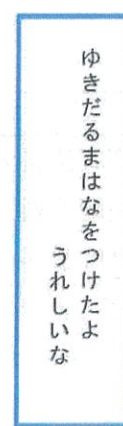 ゆきだるまはなをつけたよ
うれしいな